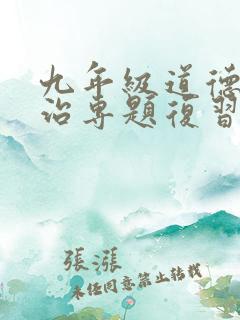 九年級道德
治專題復習
張漲
未經同意禁止轉載